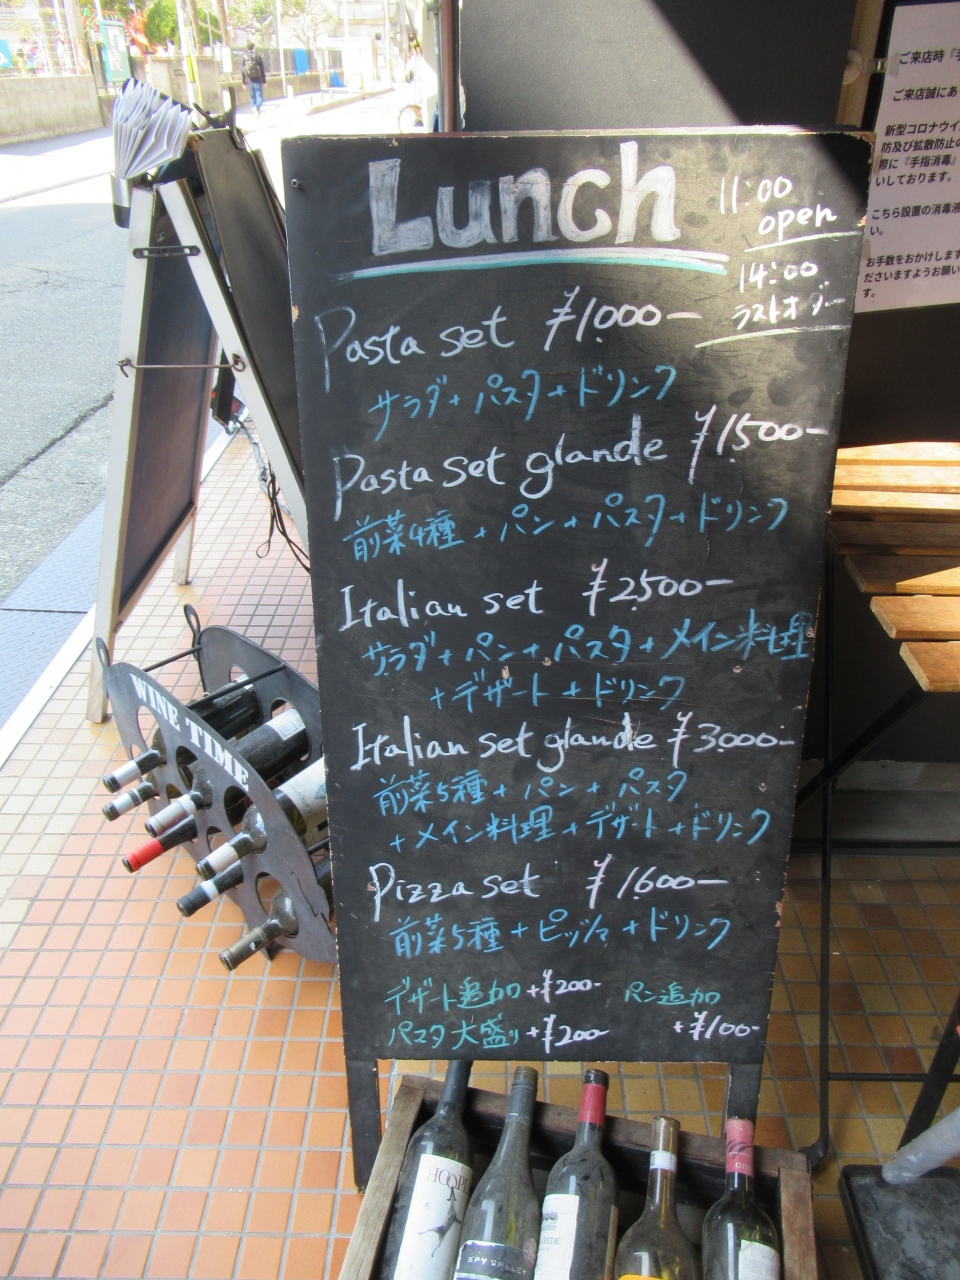 Lunch
11:00
open
14:00
ラストオーダー
Pasta set ¥1000-
サラダ+パスタ+ドリンク
Pasta set glande ¥1500-
前菜4種+パン+パスタ+ドリンク
Italian set ¥2500-
サラダ+パン+パスタ+メイン料理
+デザート+ドリンク
Italian set glande ¥3000-
前菜5種+パン+パスタ
+メイン料理+デザート+ドリンク
Pizza set ¥1600-
前菜5種+ピッツァ+ドリンク
デザート追加+¥200-
パン追加
+¥100-
パスタ大盛り+¥200-
WINE TIME
ご来店時『手
ご来店誠にあ
新型コロナウイ
防及び拡散防止の
際に『手指消毒』
いしております。
こちら設置の消毒液
い。
お手数をおかけします
ださいますようお願い
す。
SPY VALLEY